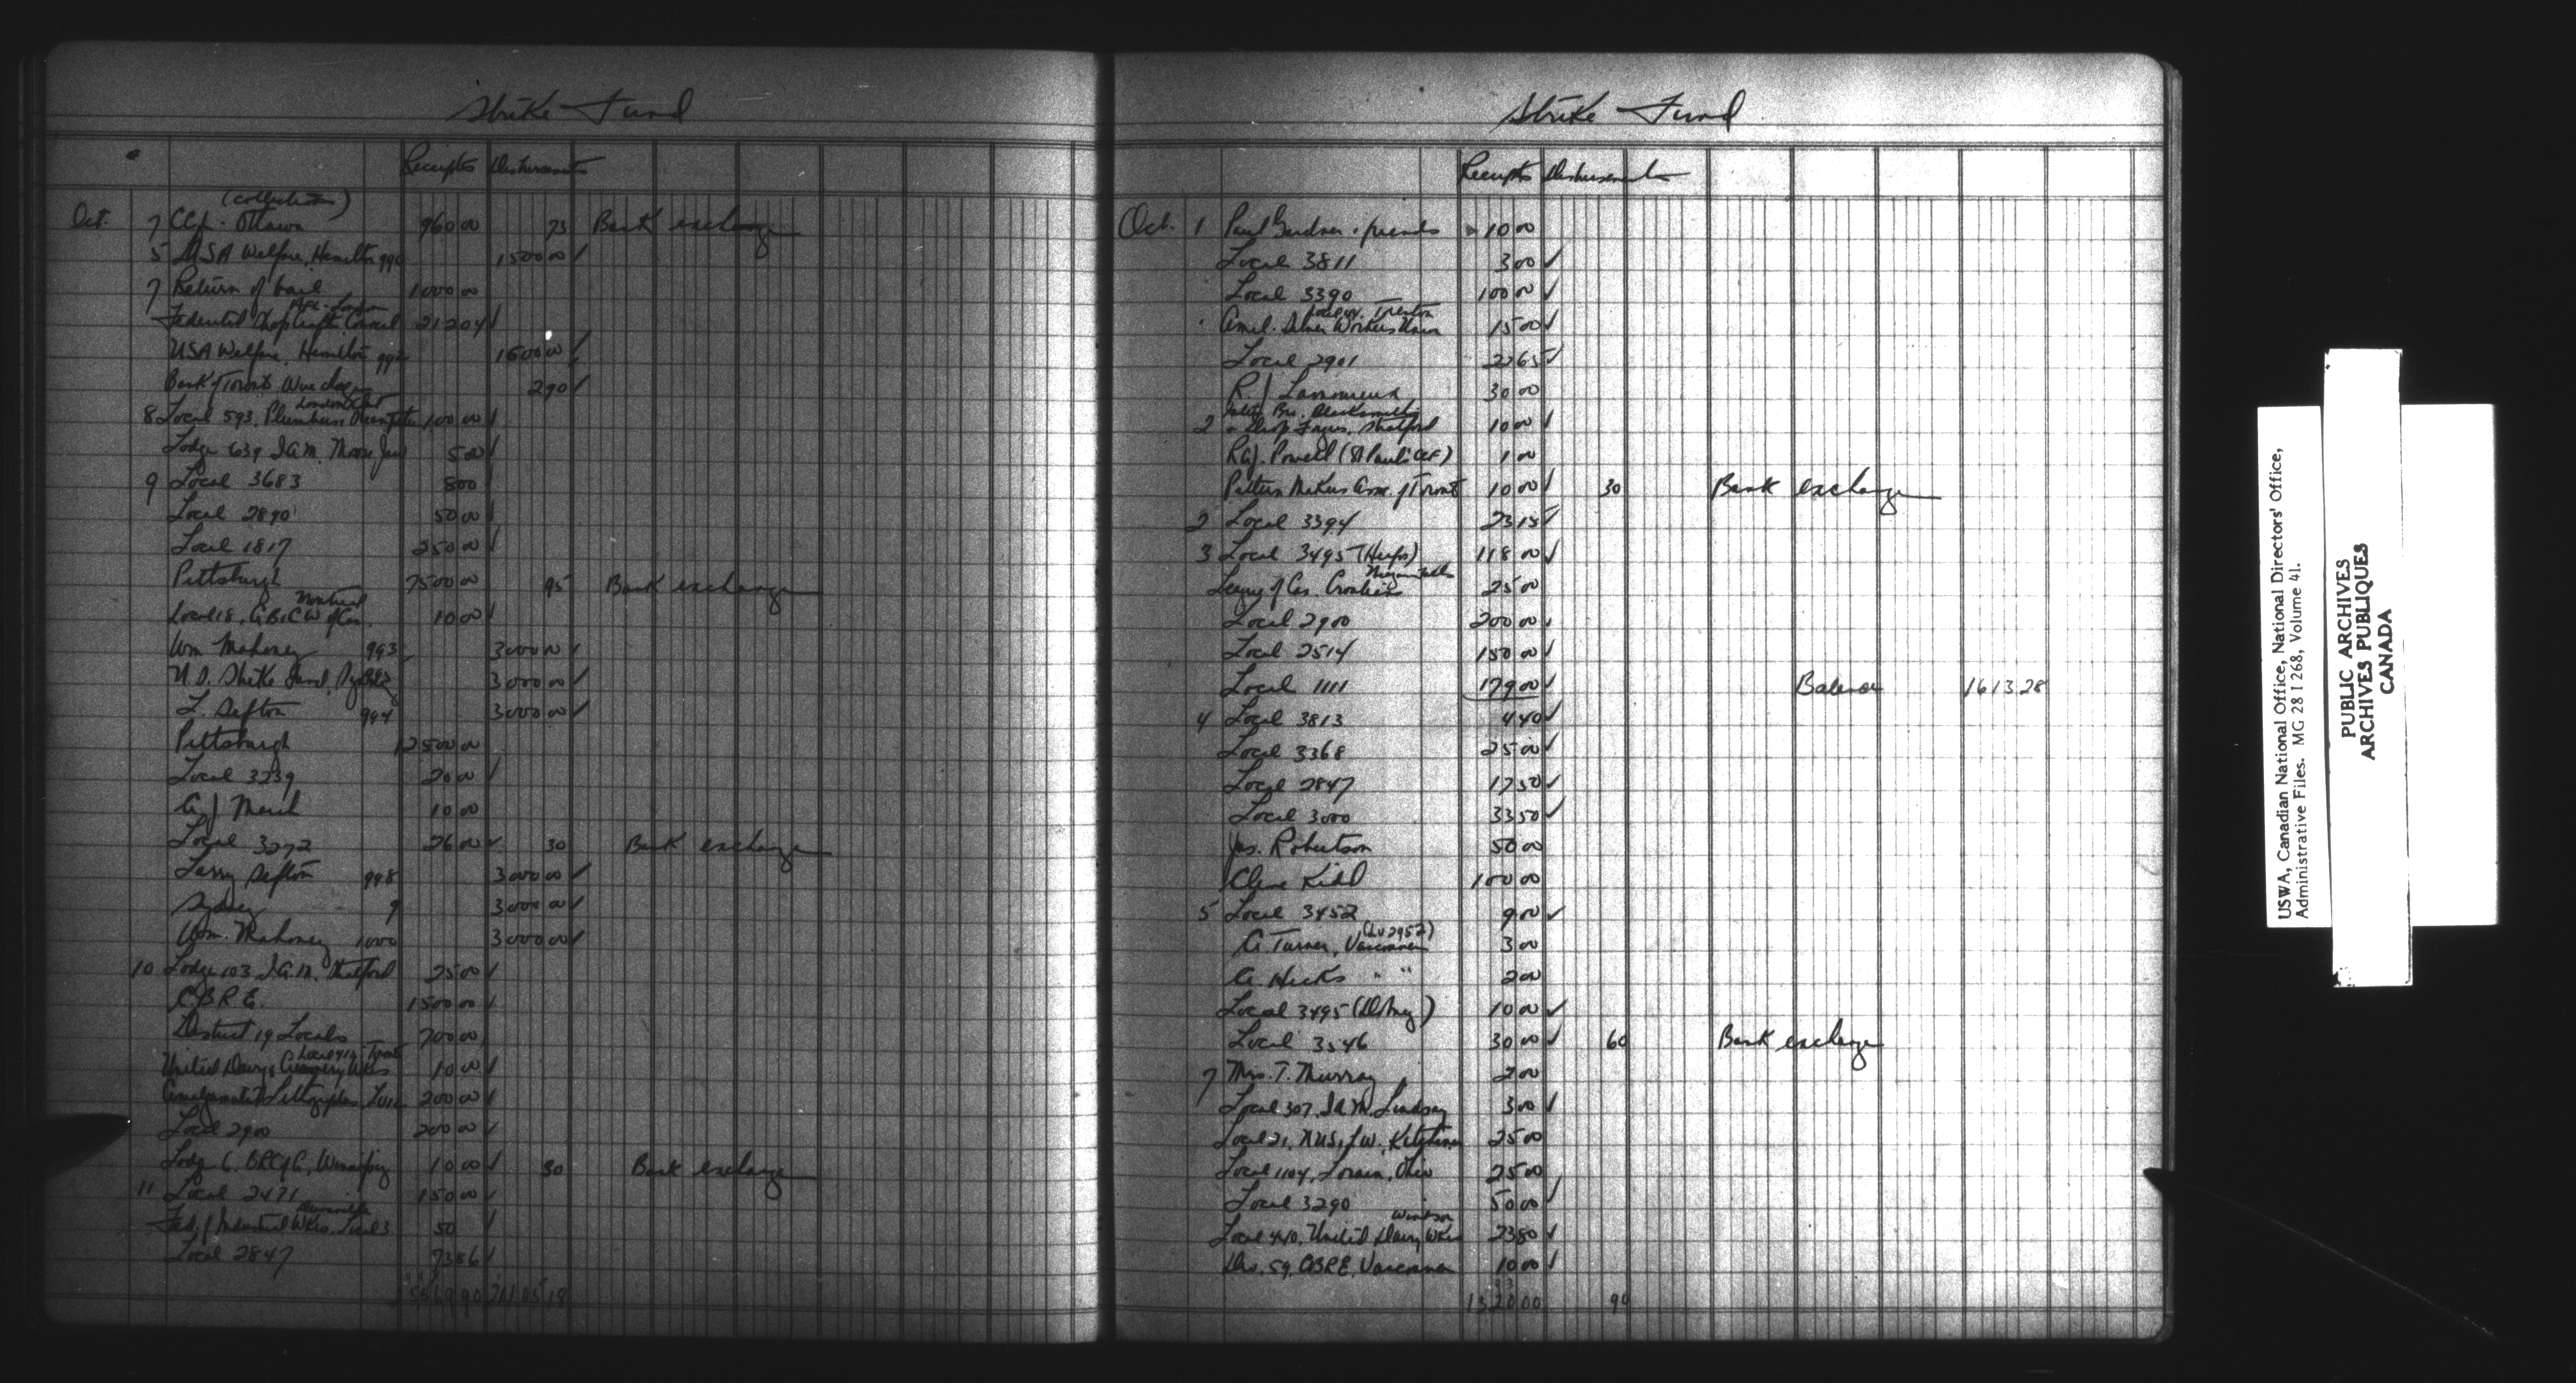 Strike Fund
Receipts Disbursements
(collections)
Oct. 7 CCF - Ottawa 960 00 73 Bank exchange
5 USA Welfare, Hamilton 990 1500 00 ✓
7 Return of bail 1000 00
AFL - London
Federated Shop Craft Council 212 04 ✓
USA Welfare, Hamilton 992 1500 00 ✓
Bank of Toronto, Wire chgs 2 90 ✓
London Ont
8 Local 593, Plumbers & 100 00 ✓
Lodge 639 I.A.M. Moose Jaw 5 00 ✓
9 Local 3683 8 00 ✓
Local 2890 50 00 ✓
Local 1817 250 00 ✓
Pittsburgh 7500 00 95 Bank exchange
Montreal
Local 18, G.B.C.W of Can. 10 00 ✓
Wm Mahoney 993 3000 00 ✓
N.S. Strike Fund, Sydney 3000 00 ✓
L. Sefton 994 3000 00 ✓
Pittsburgh 12500 00
Local 3239 20 00 ✓
A J March 10 00
Local 3272 26 00 ✓ 30 Bank exchange
Larry Sefton 998 3000 00 ✓
Sydney 9 3000 00 ✓
Wm. Mahoney 1000 3000 00 ✓
10 Lodge 103 I.A.M. Stratford 25 00 ✓
C.B.R.E. 1500 00 ✓
District 19 Locals 700 00
Local 419 Toronto
United Dairy & Creamery Wkrs 10 00 ✓
Amalgamated Lithographers, 200 00 ✓
Local 2900 200 00 ✓
Lodge 6, BRC of A, Winnipeg 10 00 ✓ 30 Bank exchange
11 Local 2471 150 00 ✓
Fed. of Industrial Wkrs. Local 3 50 ✓
Local 2847 73 86 ✓
Strike Fund
Receipts Disbursements
Oct. 1 Paul Gardner & friends 10 00
Local 3811 3 00 ✓
Local 3390 100 00 ✓
Trenton
Amal. Silver Workers Union 15 00 ✓
Local 2901 22 65 ✓
R J Lamoureux 30 00
Intl. Bro. Blacksmiths
2 & Drop Forgers, Stratford 10 00 ✓
R.G.J. Powell (St Paul's CCF) 1 00
Pattern Makers Assn. of Toronto 10 00 ✓ 30 Bank exchange
2 Local 3394 23 15 ✓
3 Local 3495 (Heaps) 118 00 ✓
Niagara Falls
League of Can. Croatians 25 00
Local 2900 200 00 ✓
Local 2514 150 00 ✓
Local 1111 179 00 ✓ Balance 1613.28
4 Local 3813 4 40 ✓
Local 3368 25 00 ✓
Local 2847 17 50 ✓
Local 3000 33 50 ✓
Jas. Robertson 50 00
Cleve Kidd 100 00
5 Local 3452 9 00 ✓
(Lu 2952)
A Turner, Vancouver 3 00
A Hicks " " 2 00
Local 3495 (Disney) 10 00 ✓
Local 3546 30 00 ✓ 60 Bank exchange
7 Mrs. T. Murray 2 00
Local 307, I.A.M. Lindsay 3 00 ✓
Local 21, Kitchener 25 00
Local 1104, Lorain, Ohio 25 00
Local 3290 50 00 ✓
Windsor
Local 440, United Dairy Wkrs 23 80 ✓
Div. 59, CBRE, Vancouver 10 00 ✓
1320 00 90
USWA, Canadian National Office, National Directors' Office,
Administrative Files. MG 28 I 268, Volume 41.
PUBLIC ARCHIVES
ARCHIVES PUBLIQUES
CANADA